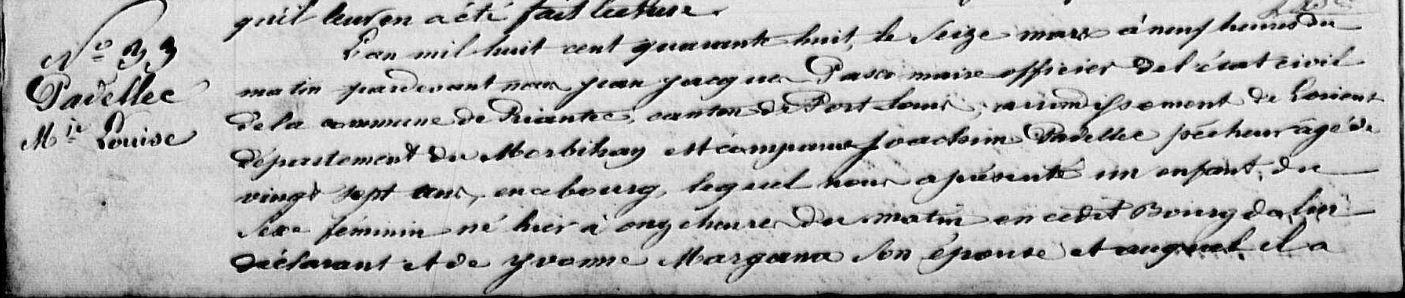 qu'il leur en a été fait lecture.
N° 33
Padellec
M.ie Louise
L'an mil huit cent quarante huit, le seize mars à neuf heures du
matin pardevant nous Jean Jacques Pasco maire officier de l'état civil
de la commune de Riantec, canton de Port Louis, arrondissement de Lorient
département du Morbihan est comparu Joachim Padellec pêcheur âgé de
vingt sept ans, en ce bourg, lequel nous a présenté un enfant du
sexe féminin né hier à onze heures du matin en cedit Bourg de lui
déclarant et de Yvonne Margana son épouse et auquel il a